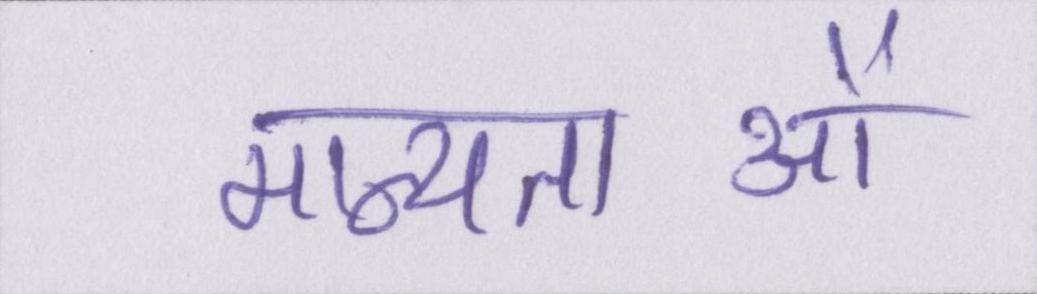 मान्यताओं